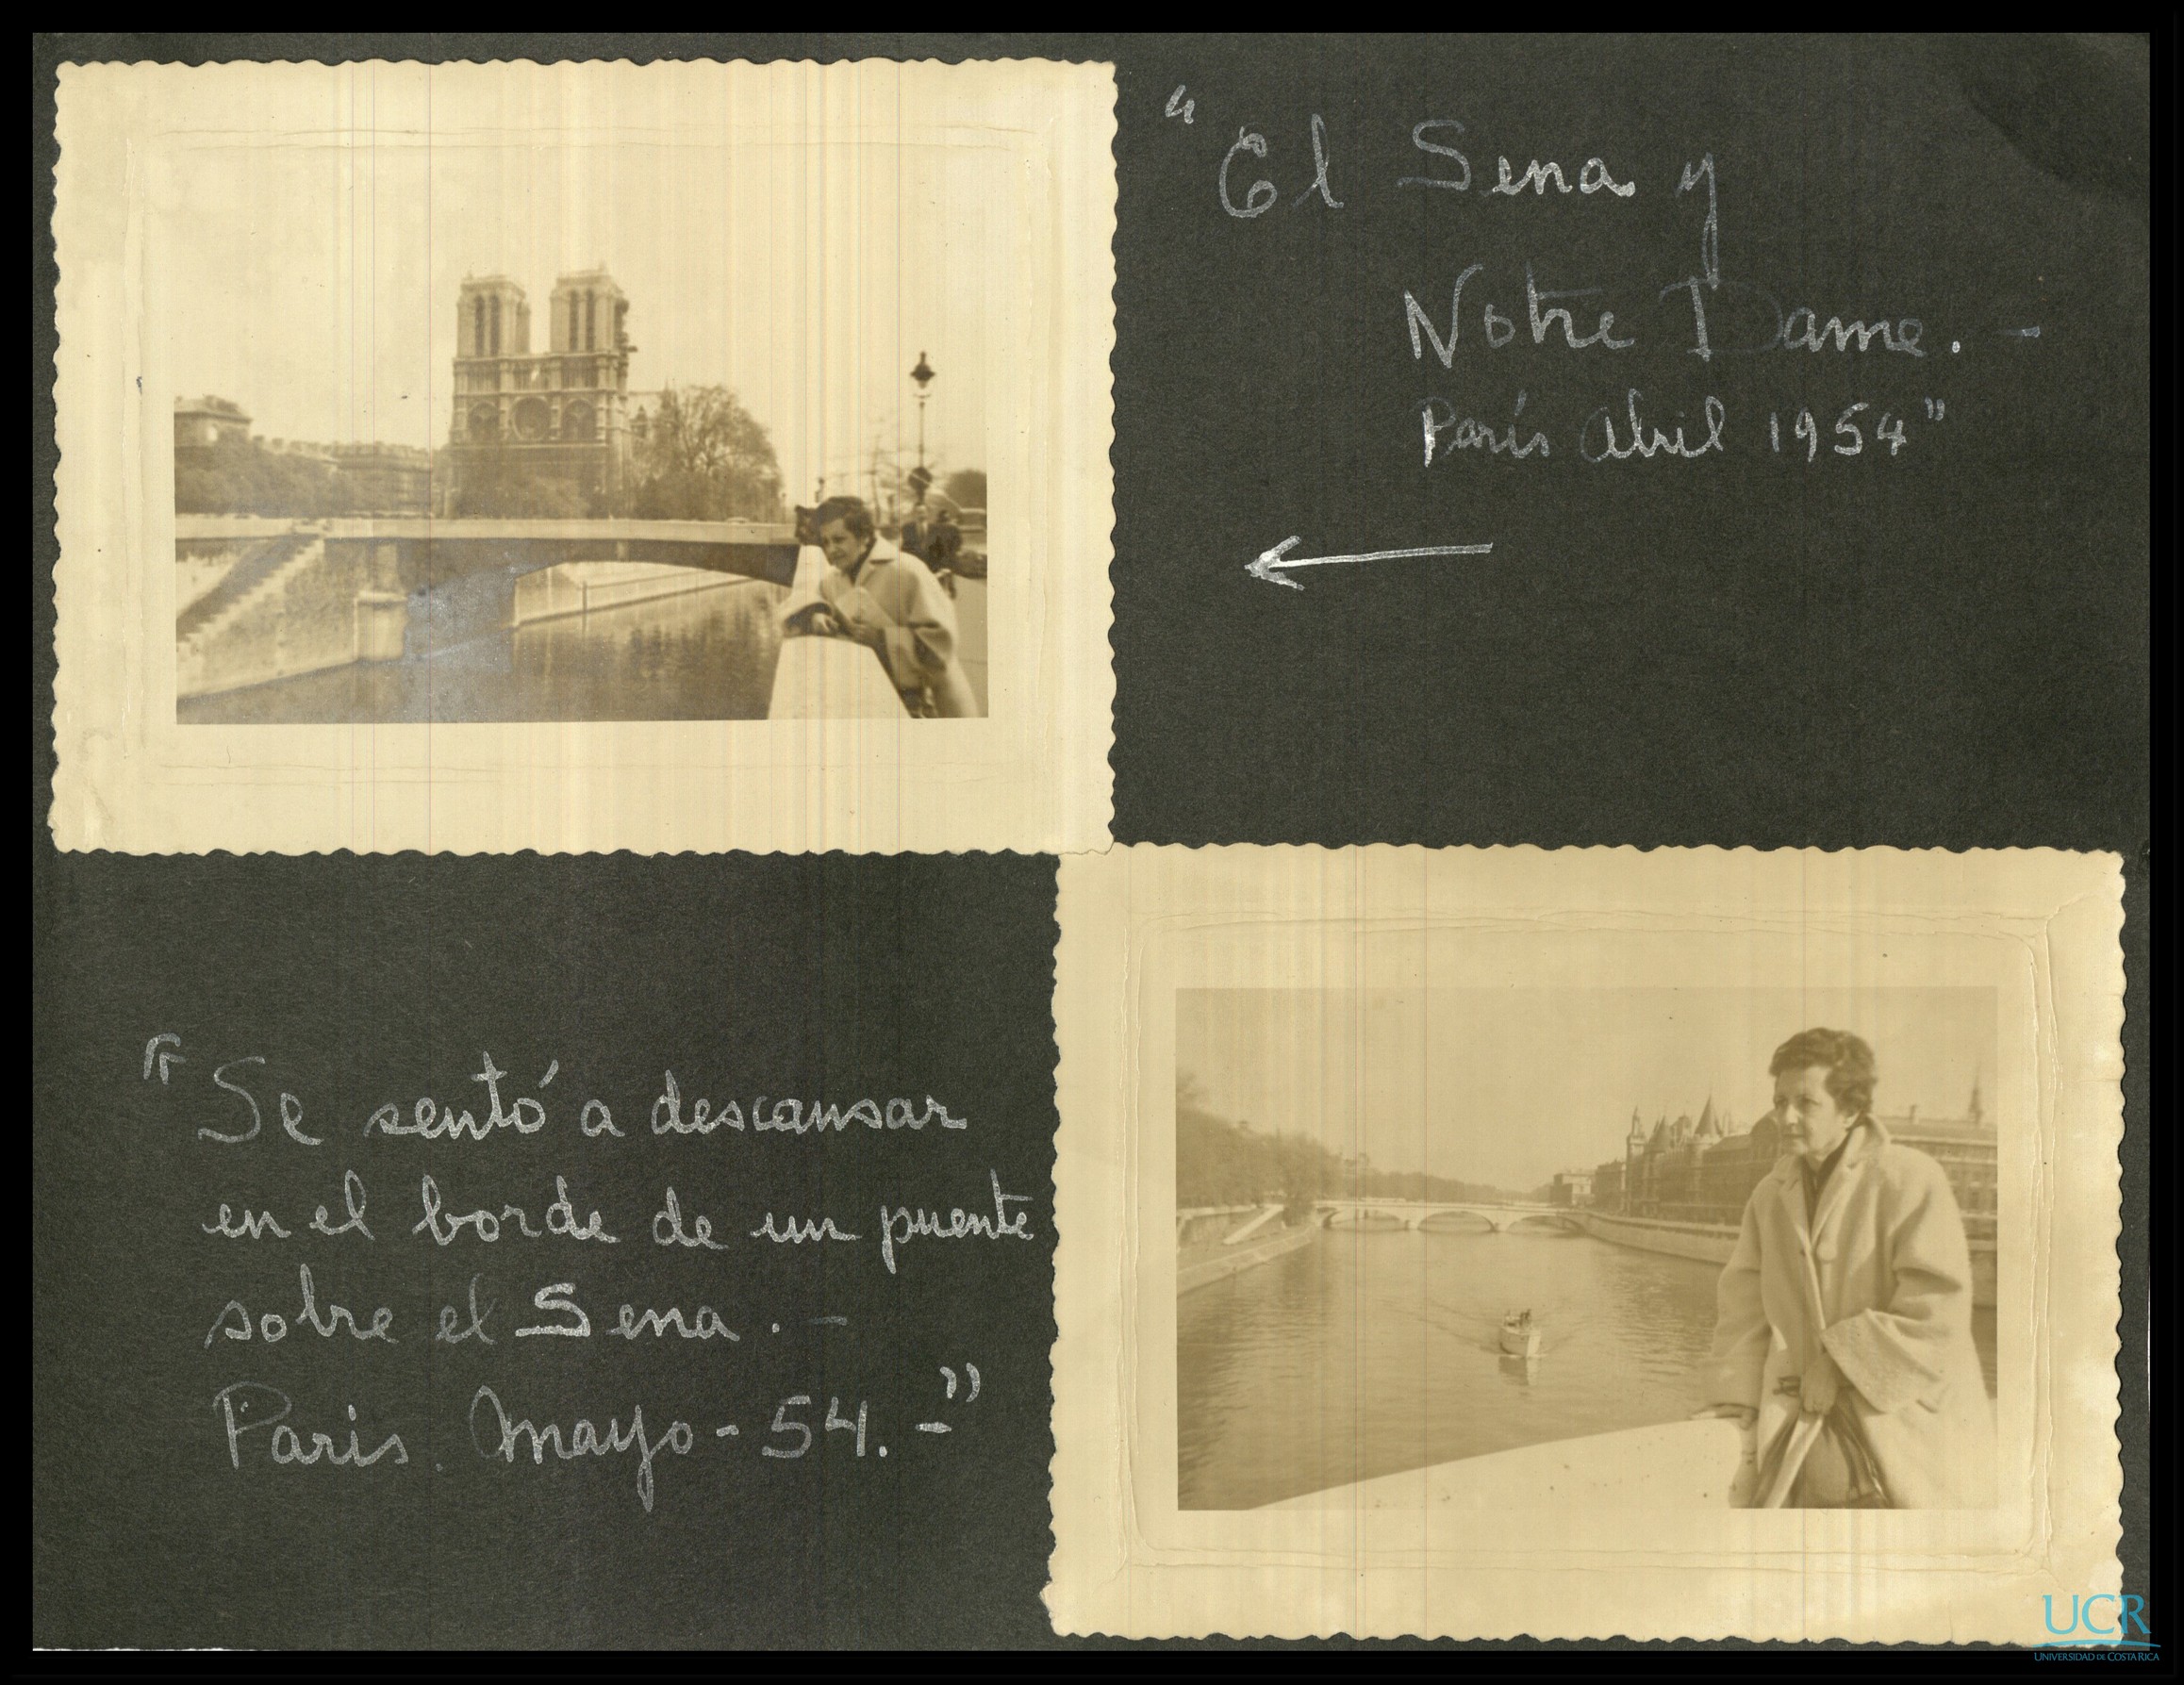 "El Sena y
Notre Dame. -
París Abril 1954"
"Se sentó a descansar
en el borde de un puente
sobre el Sena. -
Paris. Mayo - 54. -"
UCR
UNIVERSIDAD DE COSTA RICA